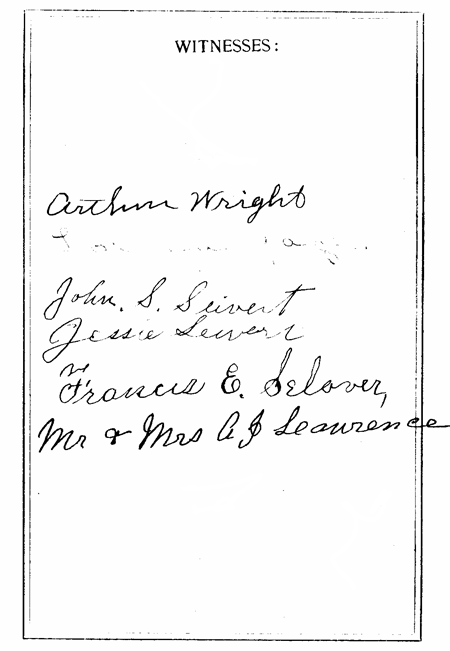 WITNESSES:
Arthur Wright
John. S. Seivert
Jessie Seivert
Francis E. Selover,
Mr & Mrs A J Leawrence